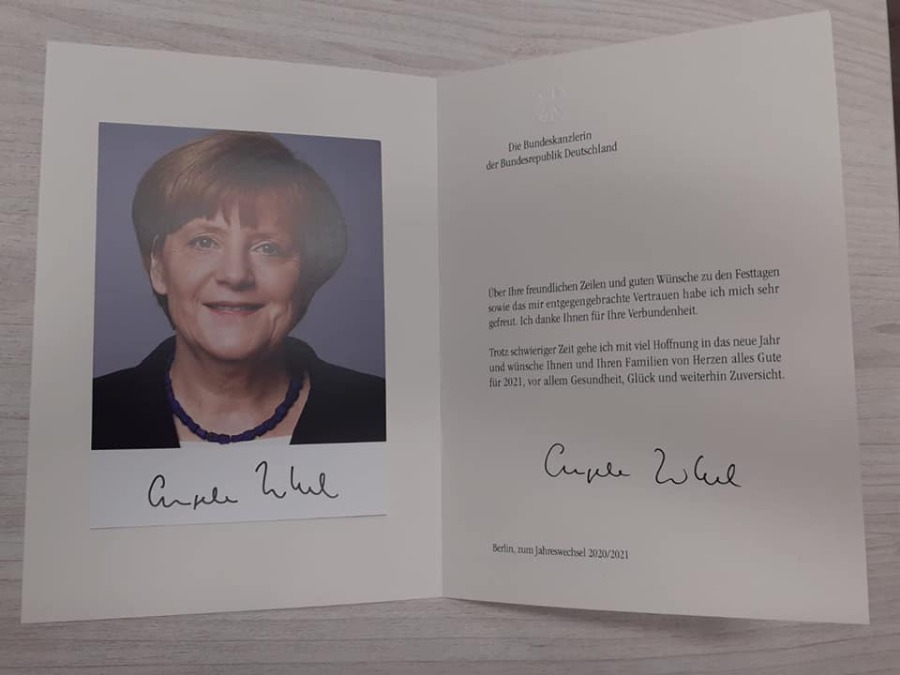 Angela Merkel
Die Bundeskanzlerin
der Bundesrepublik Deutschland
Über Ihre freundlichen Zeilen und guten Wünsche zu den Festtagen
sowie das mir entgegengebrachte Vertrauen habe ich mich sehr
gefreut. Ich danke Ihnen für Ihre Verbundenheit.
Trotz schwieriger Zeit gehe ich mit viel Hoffnung in das neue Jahr
und wünsche Ihnen und Ihren Familien von Herzen alles Gute
für 2021, vor allem Gesundheit, Glück und weiterhin Zuversicht.
Angela Merkel
Berlin, zum Jahreswechsel 2020/2021